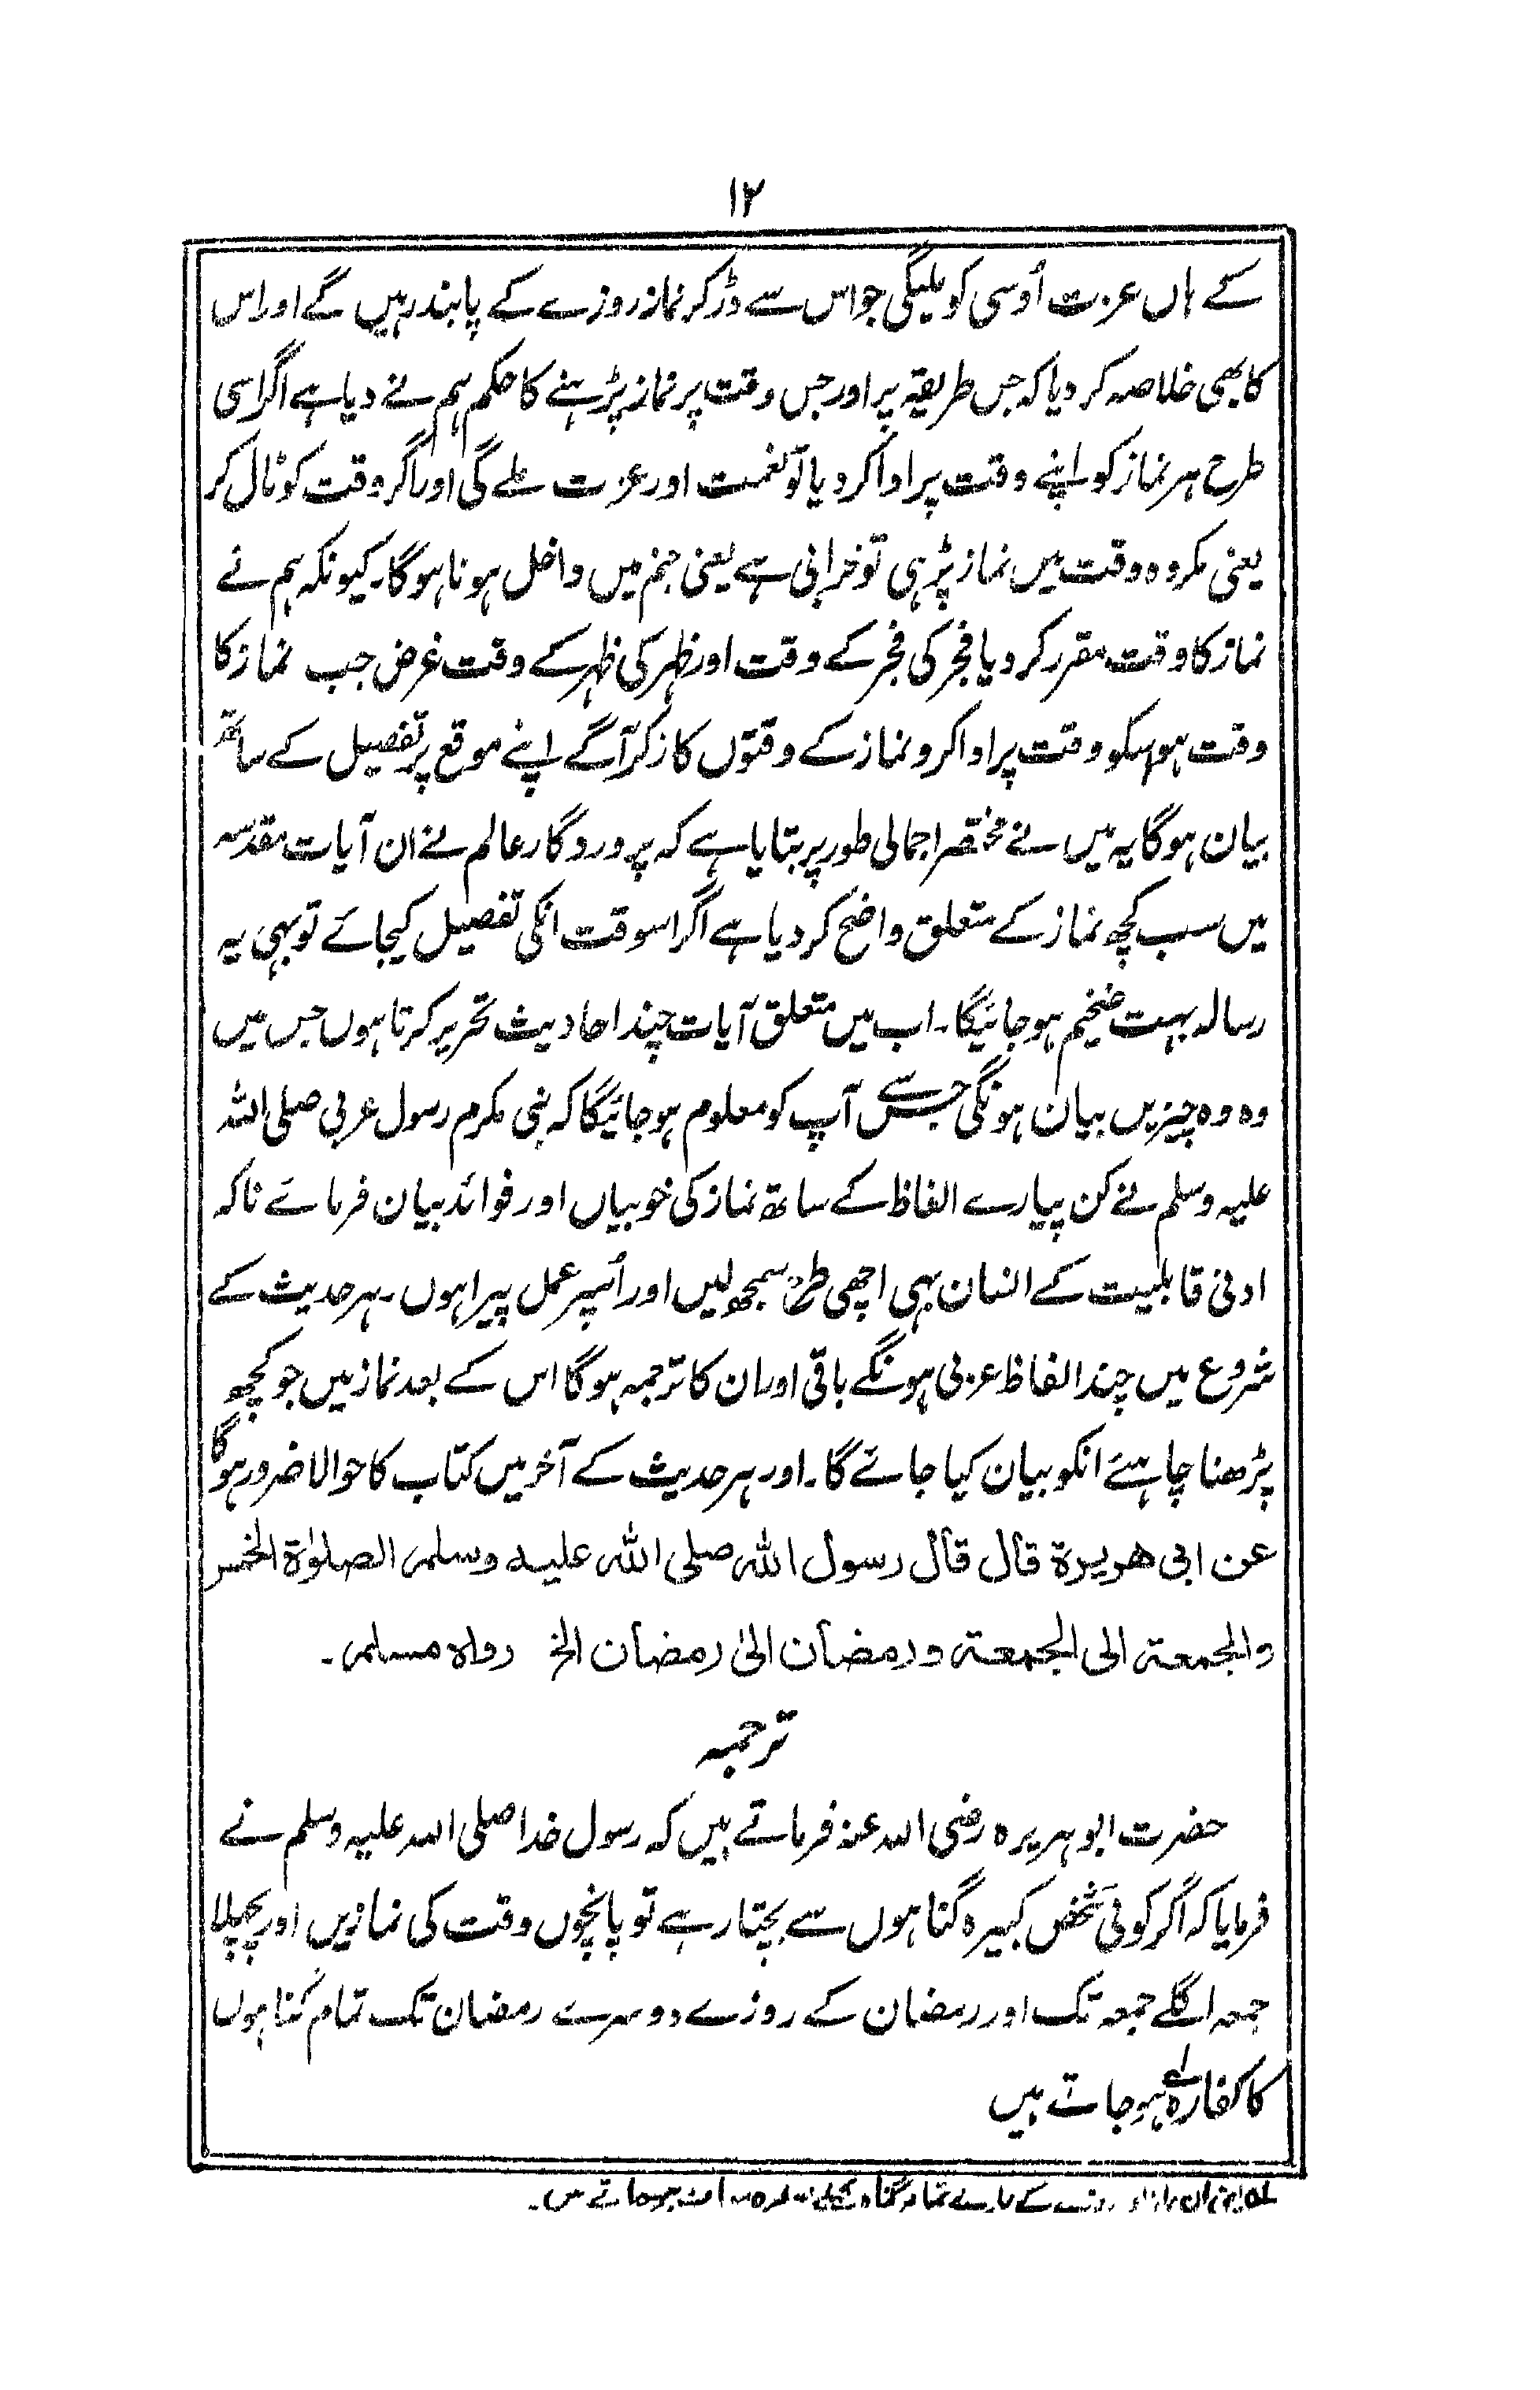 ۱۲
کے ہاں عزت اُوسی کو ملیگی جو اس سے ڈر کر نماز روزے کے پابند رہیں گے اور اس
کا بھی خلاصہ کر دیا کہ جس طریقہ پر اور جس وقت پر نماز پڑہنے کا حکم ہم نے دیا ہے اگر اسی
طرح ہر نماز کو اپنے وقت پر ادا کر دیا تو نعمت اور عزت ملے گی اور اگر وقت کو ٹال کر
یعنی مکروہ وقت میں نماز پڑہی تو خرابی ہے یعنی جہنم میں داخل ہونا ہوگا۔ کیونکہ ہم نے
نماز کا وقت مقرر کر دیا فجر کی فجر کے وقت اور ظہر کی ظہر کے وقت غرض جب نماز کا
وقت ہو اسکو وقت پر ادا کرو نماز کے وقتوں کا ذکر آگے اپنے موقع پر تفصیل کے ساتھ
بیان ہوگا یہ میں نے مختصر اجمالی طور پر بتایا ہے کہ پروردگار عالم نے ان آیات مقدسہ
میں سب کچھ نماز کے متعلق واضح کر دیا ہے اگر اسوقت انکی تفصیل کیجائے تو بہی یہ
رسالہ بہت ضخیم ہو جائیگا۔ اب میں متعلق آیات چند احادیث تحریر کرتا ہوں جس میں
وہ وہ چیزیں بیان ہونگی جس سے آپ کو معلوم ہو جائیگا کہ نبی مکرم رسول عربی صلی اللہ
علیہ وسلم نے کن پیارے الفاظ کے ساتھ نماز کی خوبیاں اور فوائد بیان فرمائے تاکہ
ادنیٰ قابلیت کے انسان بہی اچھی طرح سمجھ لیں اور اُسپر عمل پیرا ہوں۔ ہر حدیث کے
شروع میں چند الفاظ عربی ہونگے باقی اور ان کا ترجمہ ہوگا اس کے بعد نماز میں جو کچھ
پڑھنا چاہئے انکو بیان کیا جائے گا۔ اور ہر حدیث کے آخر میں کتاب کا حوالا ضرور ہوگا
عن ابی ھریرۃ قال قال رسول اللہ صلی اللہ علیہ وسلم الصلوٰۃ الخمس
والجمعۃ الی الجمعۃ ورمضان الیٰ رمضان الخ رواہ مسلم۔
ترجمہ
حضرت ابو ہریرہ رضی اللہ عنہ فرماتے ہیں کہ رسول خدا صلی اللہ علیہ وسلم نے
فرمایا کہ اگر کوئی شخص کبیرہ گناہوں سے بچتا رہے تو پانچوں وقت کی نمازیں اور پچھلا
جمعہ اگلے جمعہ تک اور رمضان کے روزے دوسرے رمضان تک تمام گناہوں
کا کفارہ ہو جاتے ہیں